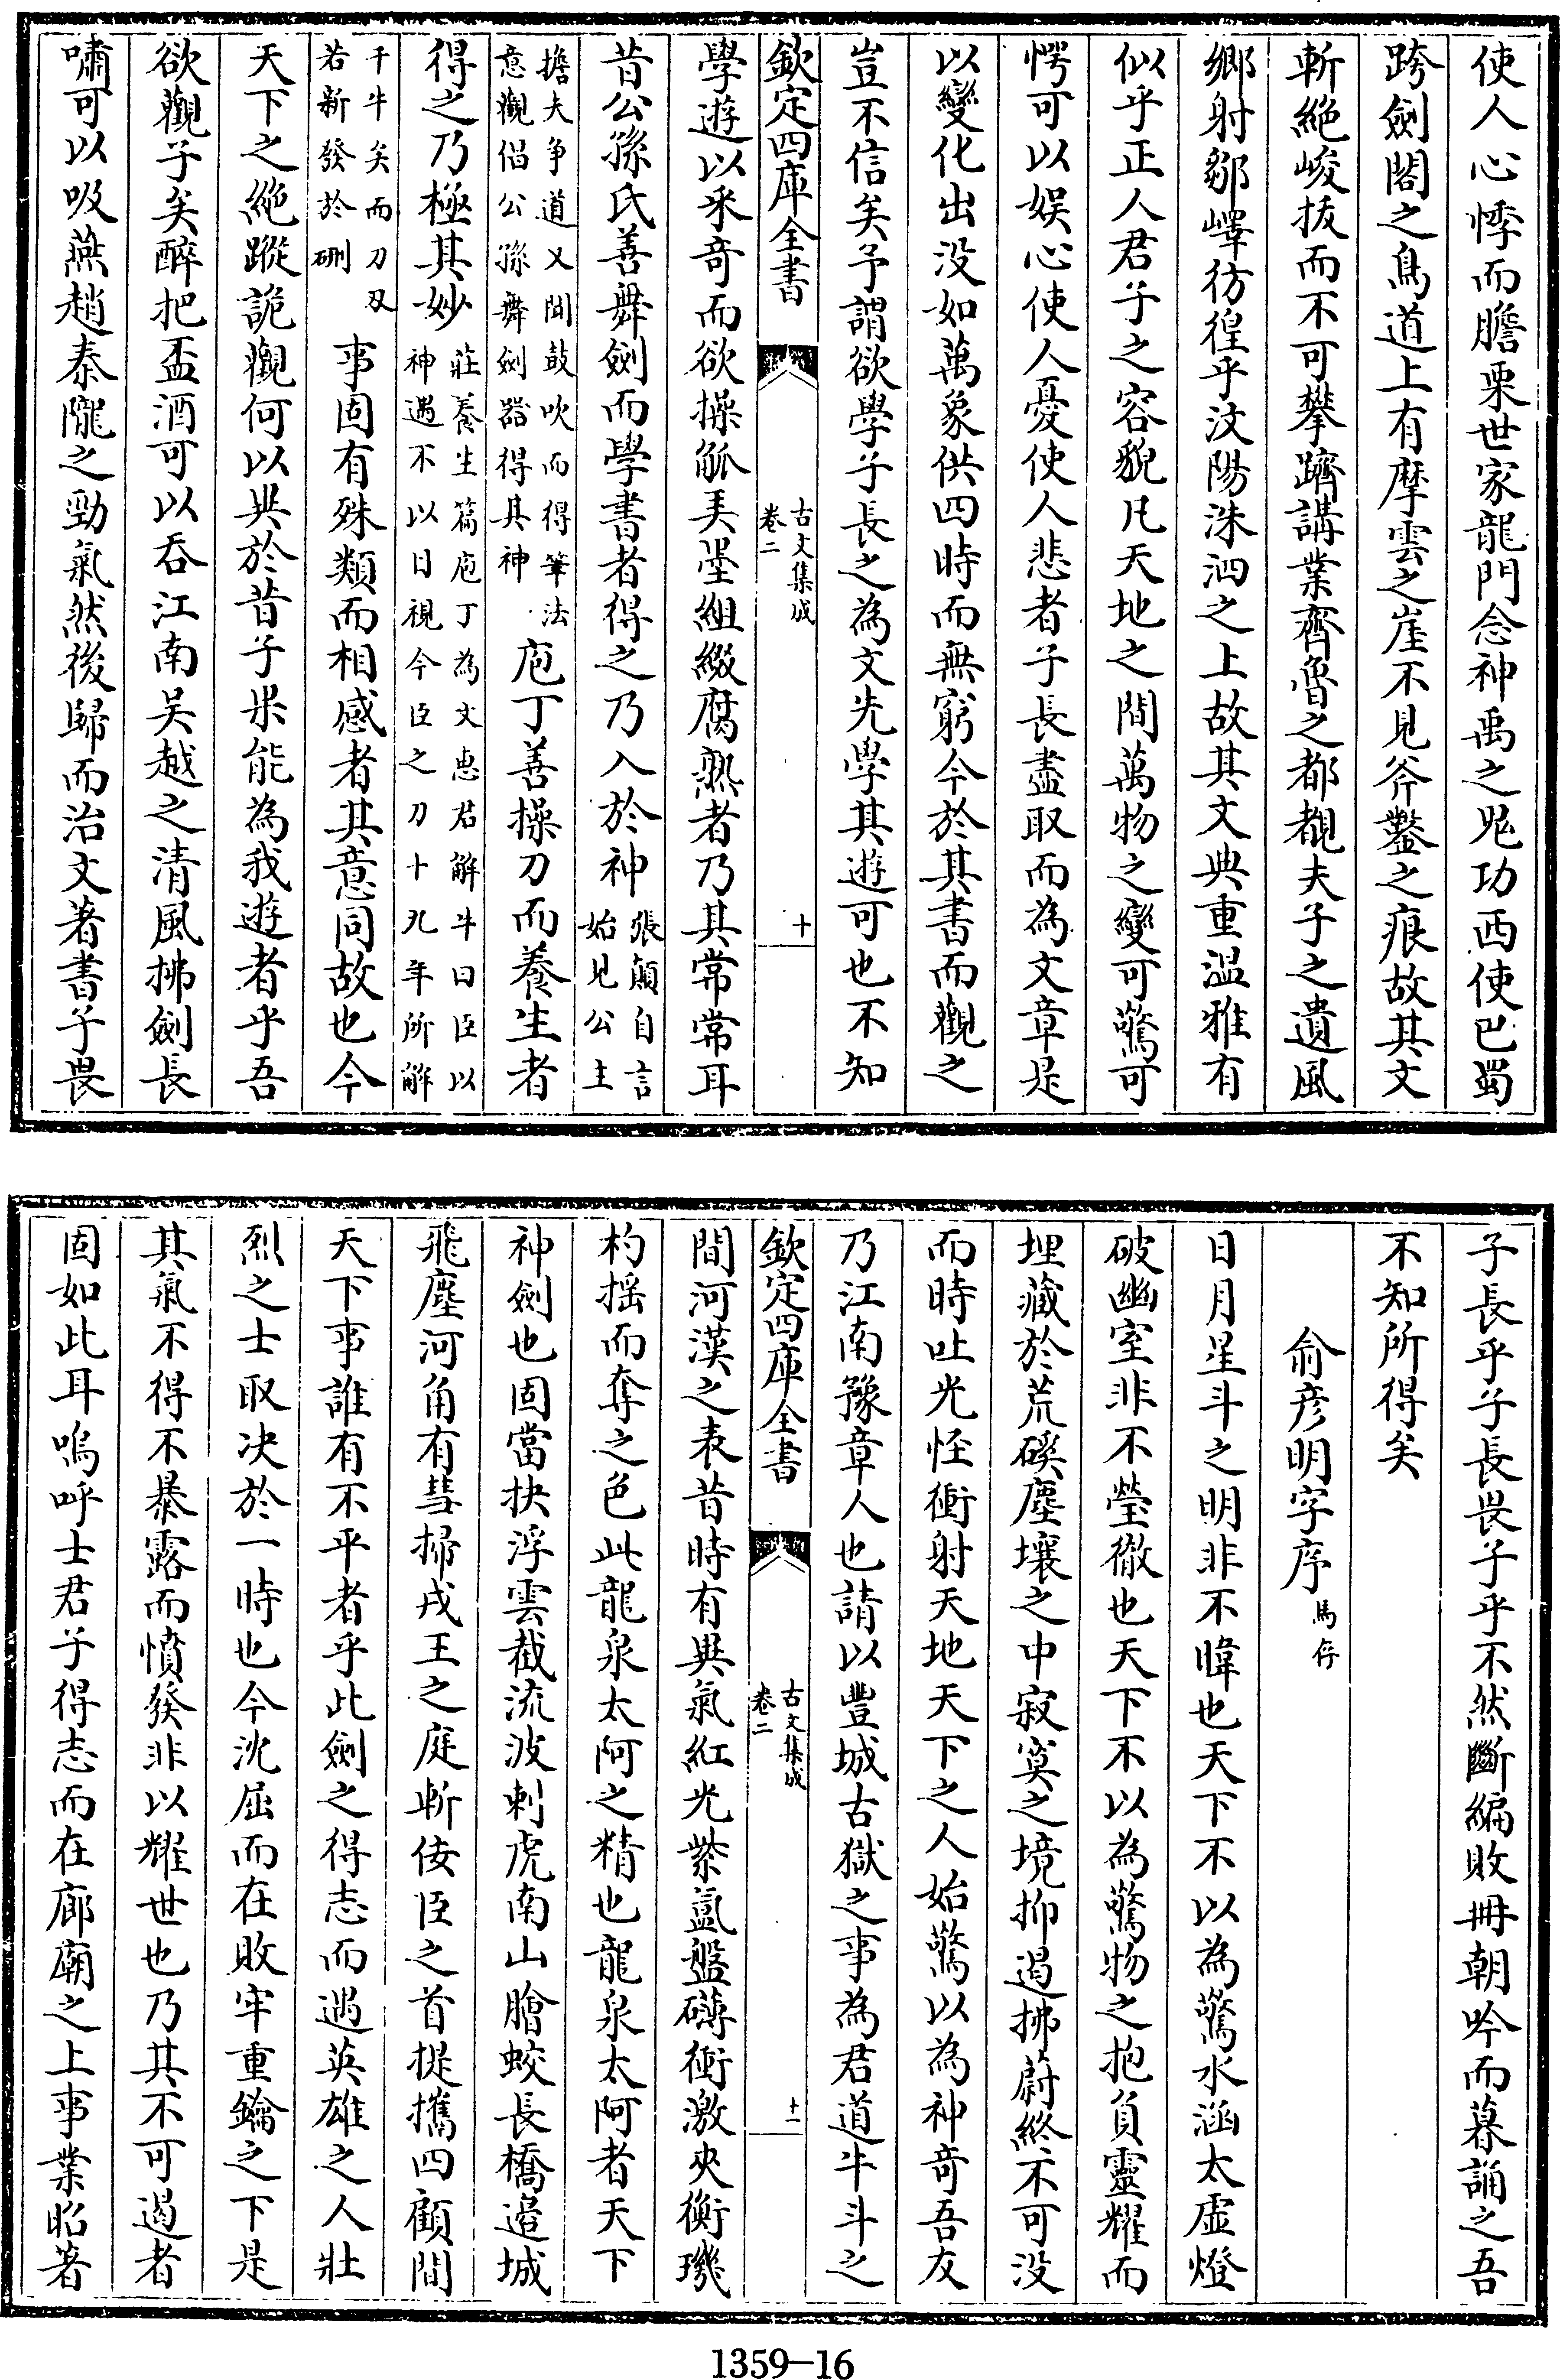 使人心悸而膽栗世家龍門念神禹之鬼功西使巴蜀
跨劍閣之鳥道上有摩雲之崖不見斧鑿之痕故其文
斬絶峻拔而不可攀躋講業齊魯之都覩夫子之遺風
鄉射鄒嶧彷徨乎汶陽洙泗之上故其文典重温雅有
似乎正人君子之容貌凡天地之間萬物之變可驚可
愕可以娱心使人憂使人悲者子長盡取而為文章是
以變化出没如萬象供四時而無窮今於其書而觀之
豈不信矣予謂欲學子長之為文先學其遊可也不知
欽定四庫全書
古文集成
卷二
十
學遊以采奇而欲操觚弄墨組綴腐熟者乃其常常耳
昔公孫氏善舞劍而學書者得之乃入於神張顛自言始見公主
擔夫争道又聞鼓吹而得筆法意觀倡公孫舞劍器得其神庖丁善操刀而養生者
得之乃極其妙莊養生篇庖丁為文惠君解牛曰臣以神遇不以目視今臣之刀十九年所解
千牛矣而刀刃若新發於硎事固有殊類而相感者其意同故也今
天下之絶蹤詭觀何以異於昔子果能為我遊者乎吾
欲觀子矣醉把盃酒可以吞江南吴越之清風拂劍長
嘯可以吸燕趙秦隴之勁氣然後歸而治文著書子畏
子長乎子長畏子乎不然斷編敗冊朝吟而暮誦之吾
不知所得矣
俞彦明字序馬存
日月星斗之明非不暐也天下不以為驚水涵太虚燈
破幽室非不瑩徹也天下不以為驚物之抱負靈耀而
埋藏於荒磎塵壤之中寂寞之境抑遏拂蔚終不可没
而時吐光怪衝射天地天下之人始驚以為神奇吾友
乃江南豫章人也請以豐城古獄之事為君道牛斗之
欽定四庫全書
古文集成
卷二
十一
間河漢之表昔時有異氣紅光紫氳盤礴衝激夾衡璣
杓摇而奪之色此龍泉太阿之精也龍泉太阿者天下
神劍也固當抉浮雲截流波刺虎南山膾蛟長橋邉城
飛塵河角有彗掃戎王之庭斬佞臣之首提攜四顧間
天下事誰有不平者乎此劍之得志而遇英雄之人壯
烈之士取决於一時也今沈屈而在敗牢重鑰之下是
其氣不得不暴露而憤發非以耀世也乃其不可遏者
固如此耳嗚呼士君子得志而在廊廟之上事業昭著
1359—16